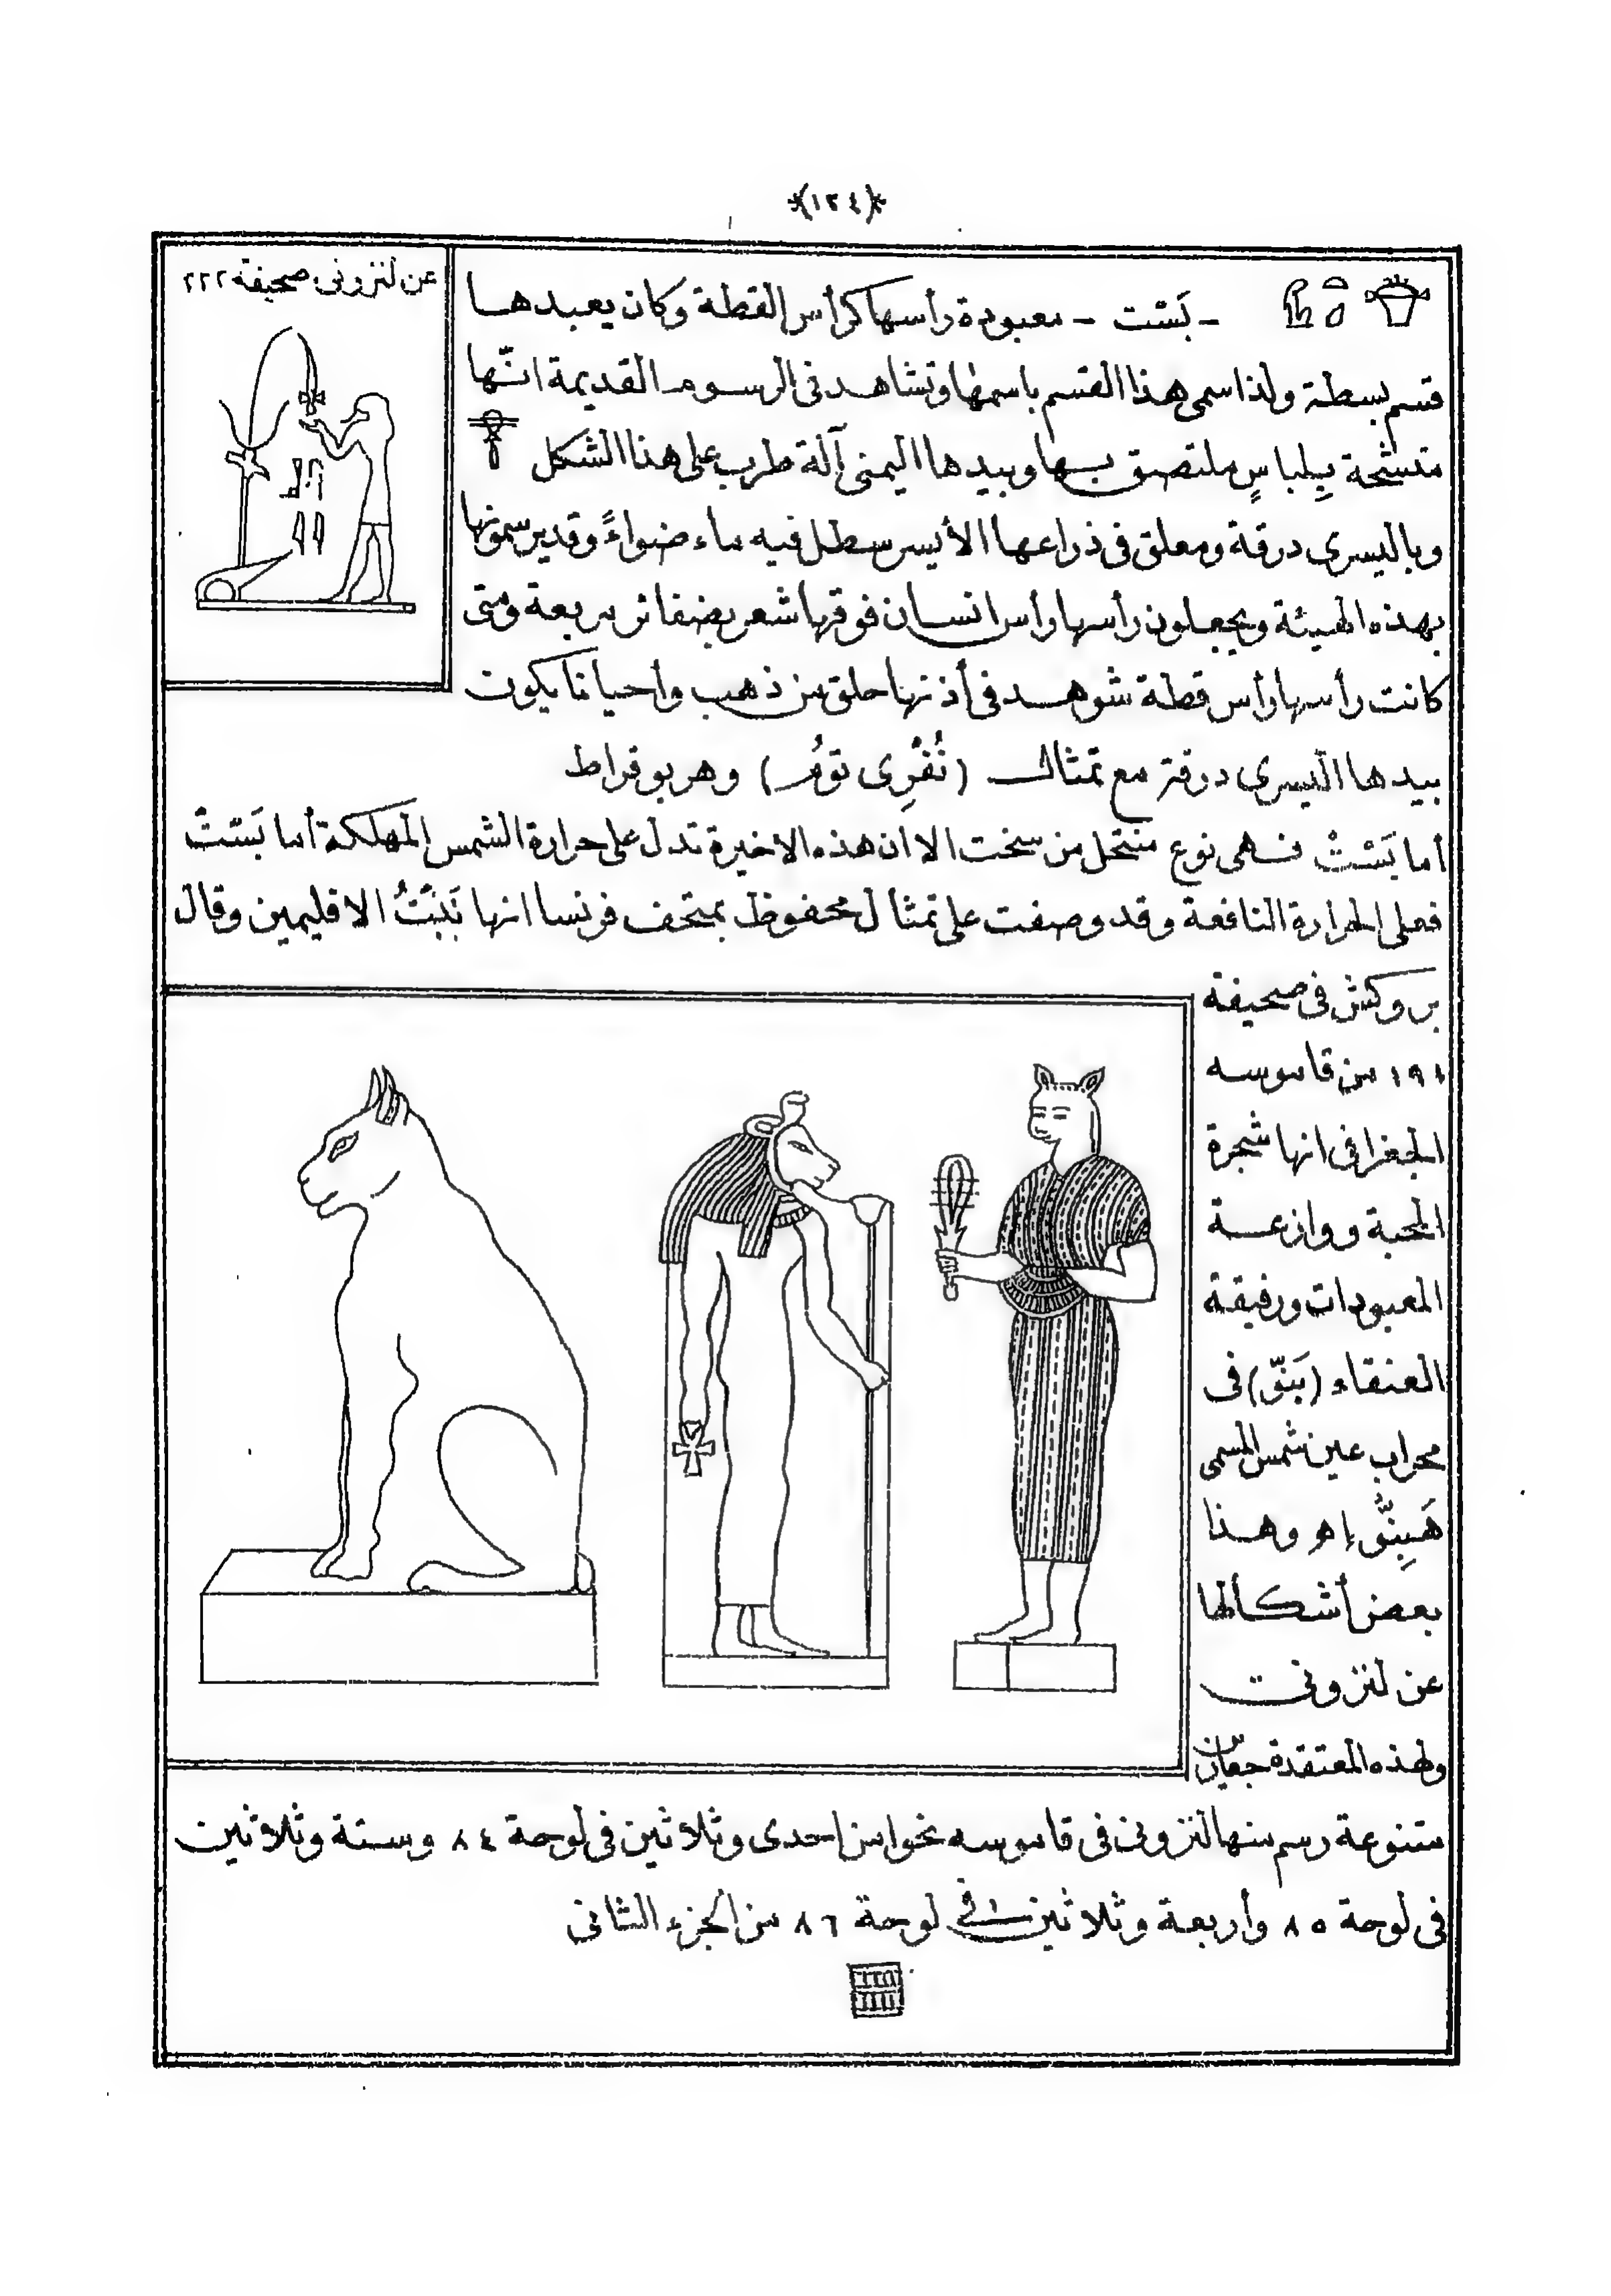 (١٢٤)
عن لنزونى صحيفة ٢٢٢
- بَسْت - معبودة رأسها كرأس القطة وكان يعبدها
قسم بسطة ولذا سمى هذا القسم باسمها وتشاهد فى الرسوم القديمة انّها
متشحة بِلباسٍ ملتصق بها وبيدها اليمنى آلة طرب على هذا الشكل
وباليسرى درقة ومعلق فى ذراعها الأيسر سطل فيه ماء ضواءً وقد يرسمونها
بهذه الهيئة ويجعلون رأسها رأس انسان فوقها شعر بضفائر مربعة ومتى
كانت رأسها رأس قطة شوهد فى أذنها حلق من ذهب وأحيانا يكون
بيدها اليسرى درقة مع تمثال (نُفْرِى تومُ) وهربوقراط
أما بَسْتْ فهى نوع منتحل من سخت الا ان هذه الاخيرة تدل على حرارة الشمس المهلكة أما بَسْتْ
فعلى الحرارة النافعة وقد وصفت على تمثال محفوظ بمتحف فرنسا انها نَبْتُ الاقليمين وقال
بروكش فى صحيفة
١٩١ من قاموسه
الجغرافى انها شجرة
المحبة ووازعة
المعبودات ورفيقة
العنقاء (بَنّو) فى
محراب عين شمس المسمى
هَبِنّو اه وهذا
بعض أشكالها
عن لنزونى
ولهذه المعتقدة جعارين
متنوعة رسم منها لنزونى فى قاموسه نحوا من احدى وثلاثين فى لوحة ٨٤ وستة وثلاثين
فى لوحة ٨٥ وأربعة وثلاثين فى لوحة ٨٦ من الجزء الثانى